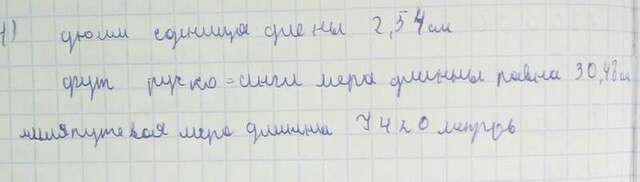 1) дюйм единица длены 2,54 см
фут руско-англ мера длинны равна 30,48 см
миля путевая мера длинны 7420 метров